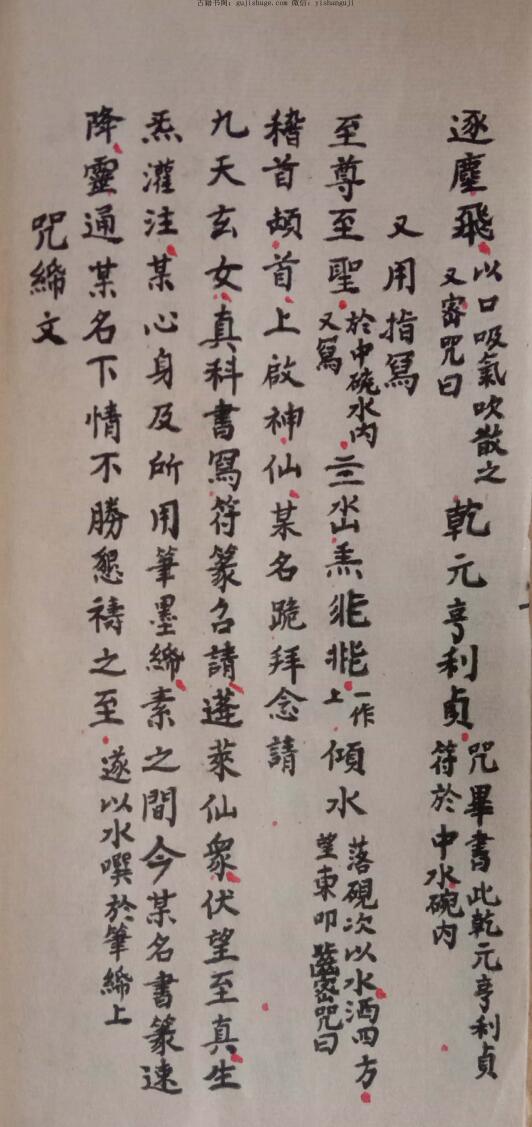 古籍书阁：gujishuge.com 微信：yishanguji
逐塵飛以口吸氣吹散之又密咒曰乾元亨利貞咒畢書此乾元亨利貞符於中水碗內
又用指寫
至尊至聖於中碗水內又寫 一作上傾水落硯次以水洒四方望東叩 密咒曰
稽首頓首上啟神仙某名跪拜念請
九天玄女真科書寫符篆名請蓬萊仙衆伏望至真生
炁灌注某心身及所用筆墨綈素之間今某名書篆速
降靈通某名下情不勝懇禱之至遂以水噀於筆綈上
咒綈文